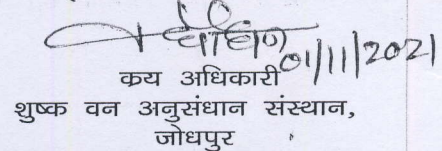 01/11/2021
क्रय अधिकारी
शुष्क वन अनुसंधान संस्थान,
जोधपुर